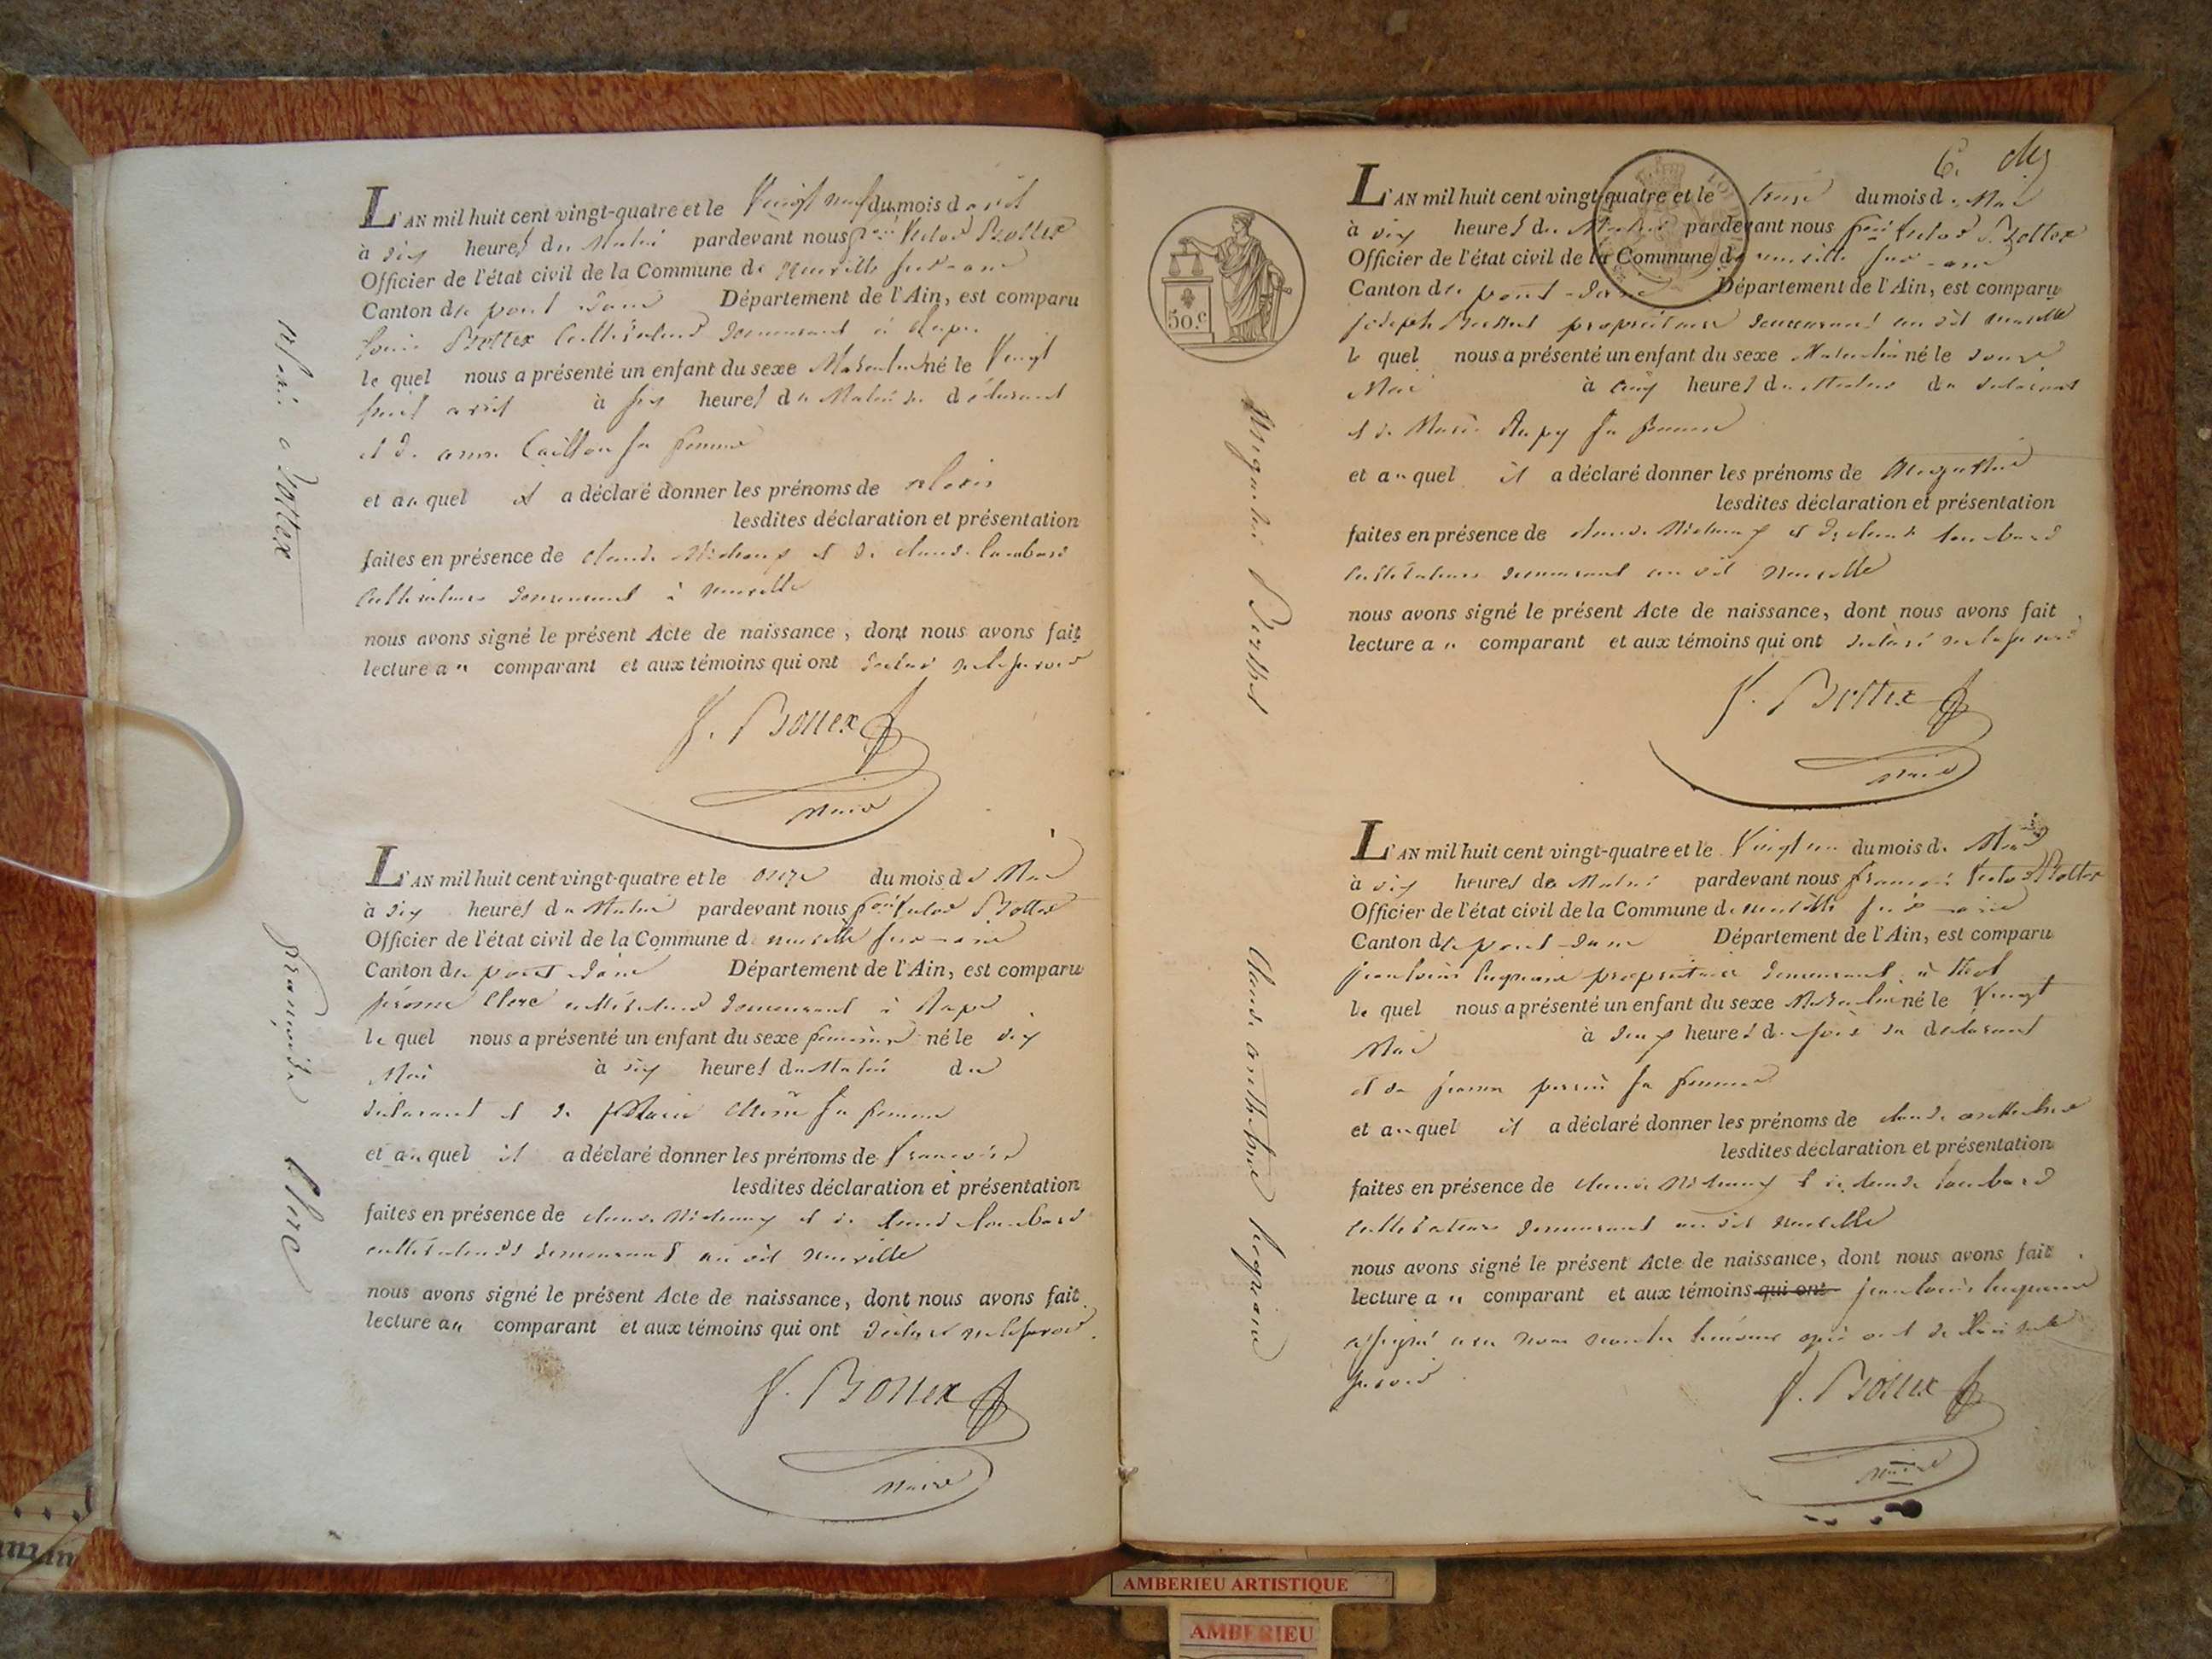 L'AN mil huit cent vingt-quatre et le Vingt neuf du mois d avril
à dix heures du Matin pardevant nous fçois Victor Bottex
Officier de l'état civil de la Commune de neuville sur-ain
Canton de pont d'ain Département de l'Ain, est comparu
Bottex Cultivateur demeurant à
le quel nous a présenté un enfant du sexe Masculin né le Vingt
huit avril à six heures du Matin du déclarant
et de anne sa femme
et au quel il a déclaré donner les prénoms de alexis
lesdites déclaration et présentation
faites en présence de claude Michaux et de claude lombard
Cultivateurs demeurant à neuville
nous avons signé le présent Acte de naissance, dont nous avons fait
lecture au comparant et aux témoins qui ont déclaré ne le savoir
V. Bottex
Maire
alexis Bottex
L'AN mil huit cent vingt-quatre et le onze du mois de Mai
à dix heures du Matin pardevant nous fçois Victor Bottex
Officier de l'état civil de la Commune de neuville sur-ain
Canton de pont d'ain Département de l'Ain, est comparu
jérome Clerc cultivateur demeurant à
le quel nous a présenté un enfant du sexe féminin né le dix
Mai à dix heures du Matin du
déclarant et de Marie sa femme
et au quel il a déclaré donner les prénoms de françoise
lesdites déclaration et présentation
faites en présence de claude Michaux et de claude lombard
cultivateurs demeurant au dit neuville
nous avons signé le présent Acte de naissance, dont nous avons fait
lecture au comparant et aux témoins qui ont déclaré ne le savoir
V. Bottex
Maire
françoise Clerc
50.c
L'AN mil huit cent vingt-quatre et le treize du mois de Mai
à dix heures du Matin pardevant nous fçois Victor Bottex
Officier de l'état civil de la Commune de neuville sur-ain
Canton de pont-d'ain Département de l'Ain, est comparu
joseph propriétaire demeurant au dit neuville
le quel nous a présenté un enfant du sexe Masculin né le douze
Mai à cinq heures du Matin du déclarant
et de Marie sa femme
et au quel il a déclaré donner les prénoms de
lesdites déclaration et présentation
faites en présence de claude Michaux et de claude lombard
cultivateurs demeurant au dit neuville
nous avons signé le présent Acte de naissance, dont nous avons fait
lecture au comparant et aux témoins qui ont déclaré ne le savoir
V. Bottex
Maire
L'AN mil huit cent vingt-quatre et le Vingt un du mois de Mai
à dix heures du Matin pardevant nous françois Victor Bottex
Officier de l'état civil de la Commune de neuville sur-ain
Canton de pont-d'ain Département de l'Ain, est comparu
jean louis propriétaire demeurant à
le quel nous a présenté un enfant du sexe Masculin né le Vingt
Mai à deux heures du soir du déclarant
et de jeanne perrin sa femme
et au quel il a déclaré donner les prénoms de claude anthelme
lesdites déclaration et présentation
faites en présence de claude Michaux et de claude lombard
cultivateurs demeurant au dit neuville
nous avons signé le présent Acte de naissance, dont nous avons fait
lecture au comparant et aux témoins qui ont jean louis
a signé avec nous non les témoins qui ont déclaré ne le
savoir
V. Bottex
Maire
claude anthelme
AMBERIEU ARTISTIQUE
AMBERIEU